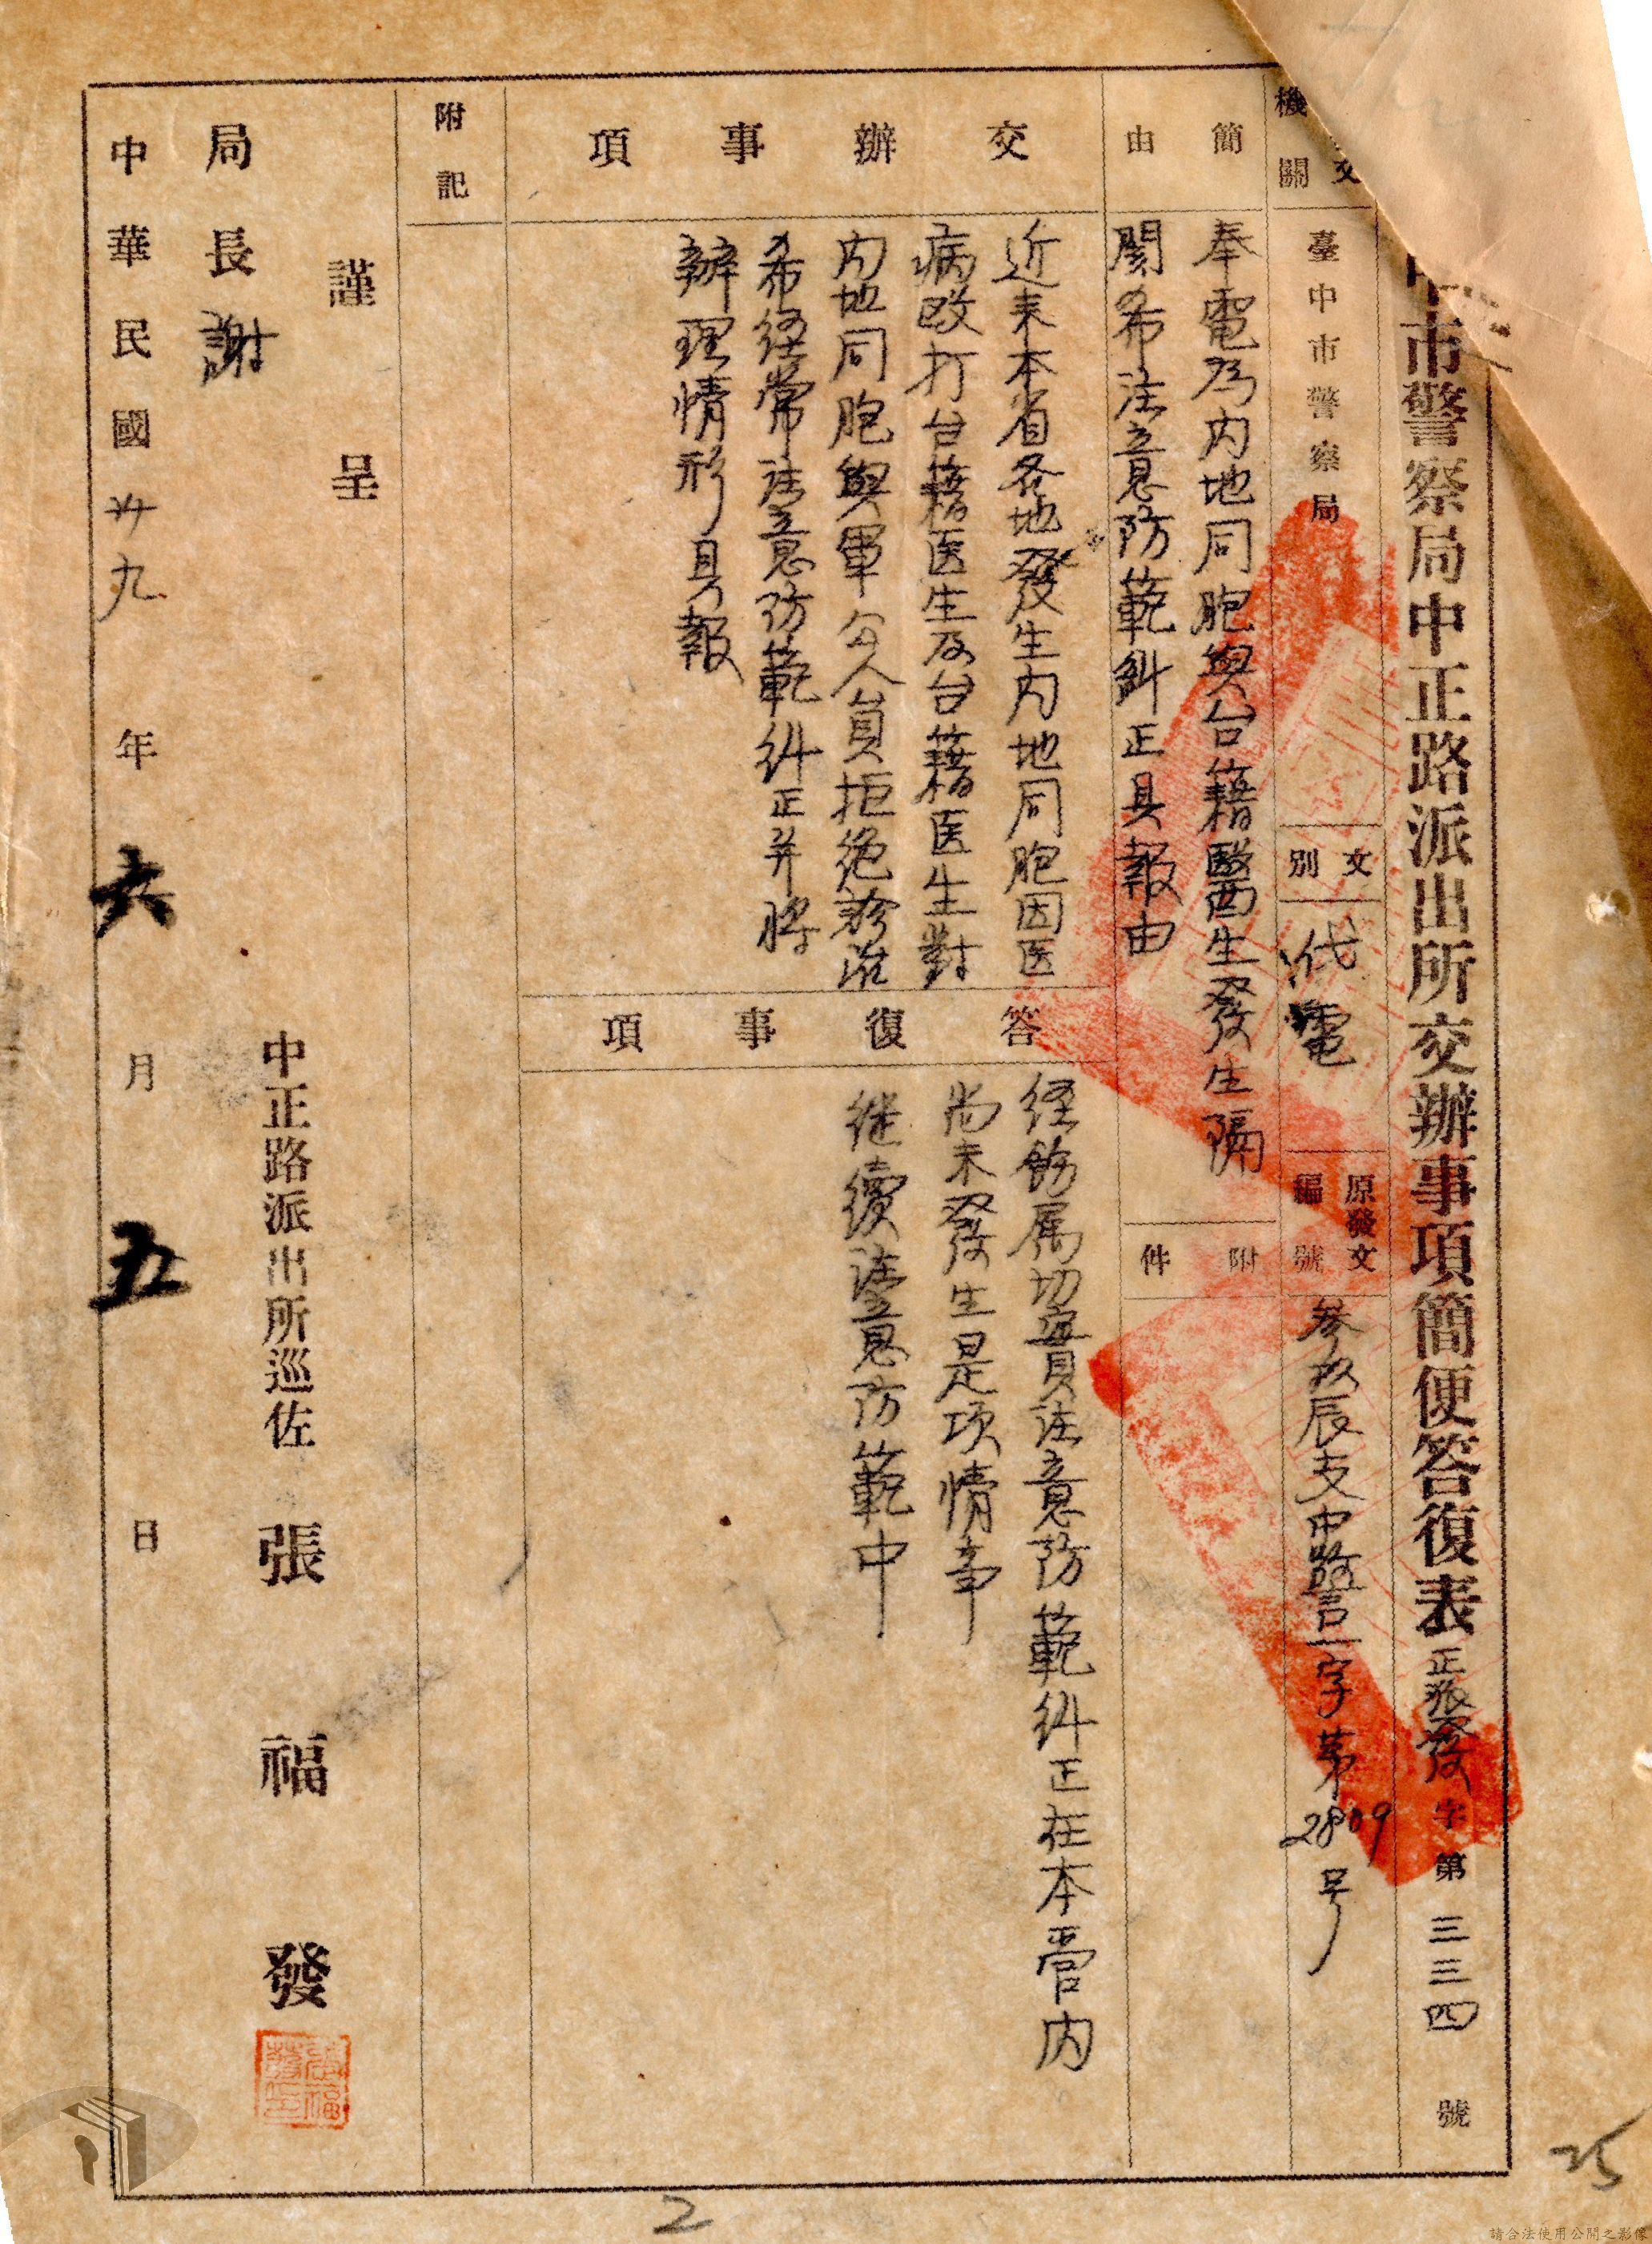 中市警察局中正路派出所交辦事項簡便答復表 正派發字第三三四號
交
機關
臺中市警察局
文別
代電
原發文編號
參玖辰支中警一字第2809号
簡由
奉電為内地同胞與台籍醫生發生隔
閡希注意防範糾正具報由
附件
交辦事項
近來本省各地發生内地同胞因医
病毆打台籍医生及台籍医生對
内地同胞與軍公人員拒绝診治
希経常注意防範糾正并將
辦理情形具報
答復事項
経飭属切實注意防範糾正在本管内
尚未發生是項情事
継續注意防範中
附記
謹呈
局長謝
中正路派出所巡佐 張福發
中華民國卅九年六月五日
2
25
請合法使用公開之影像